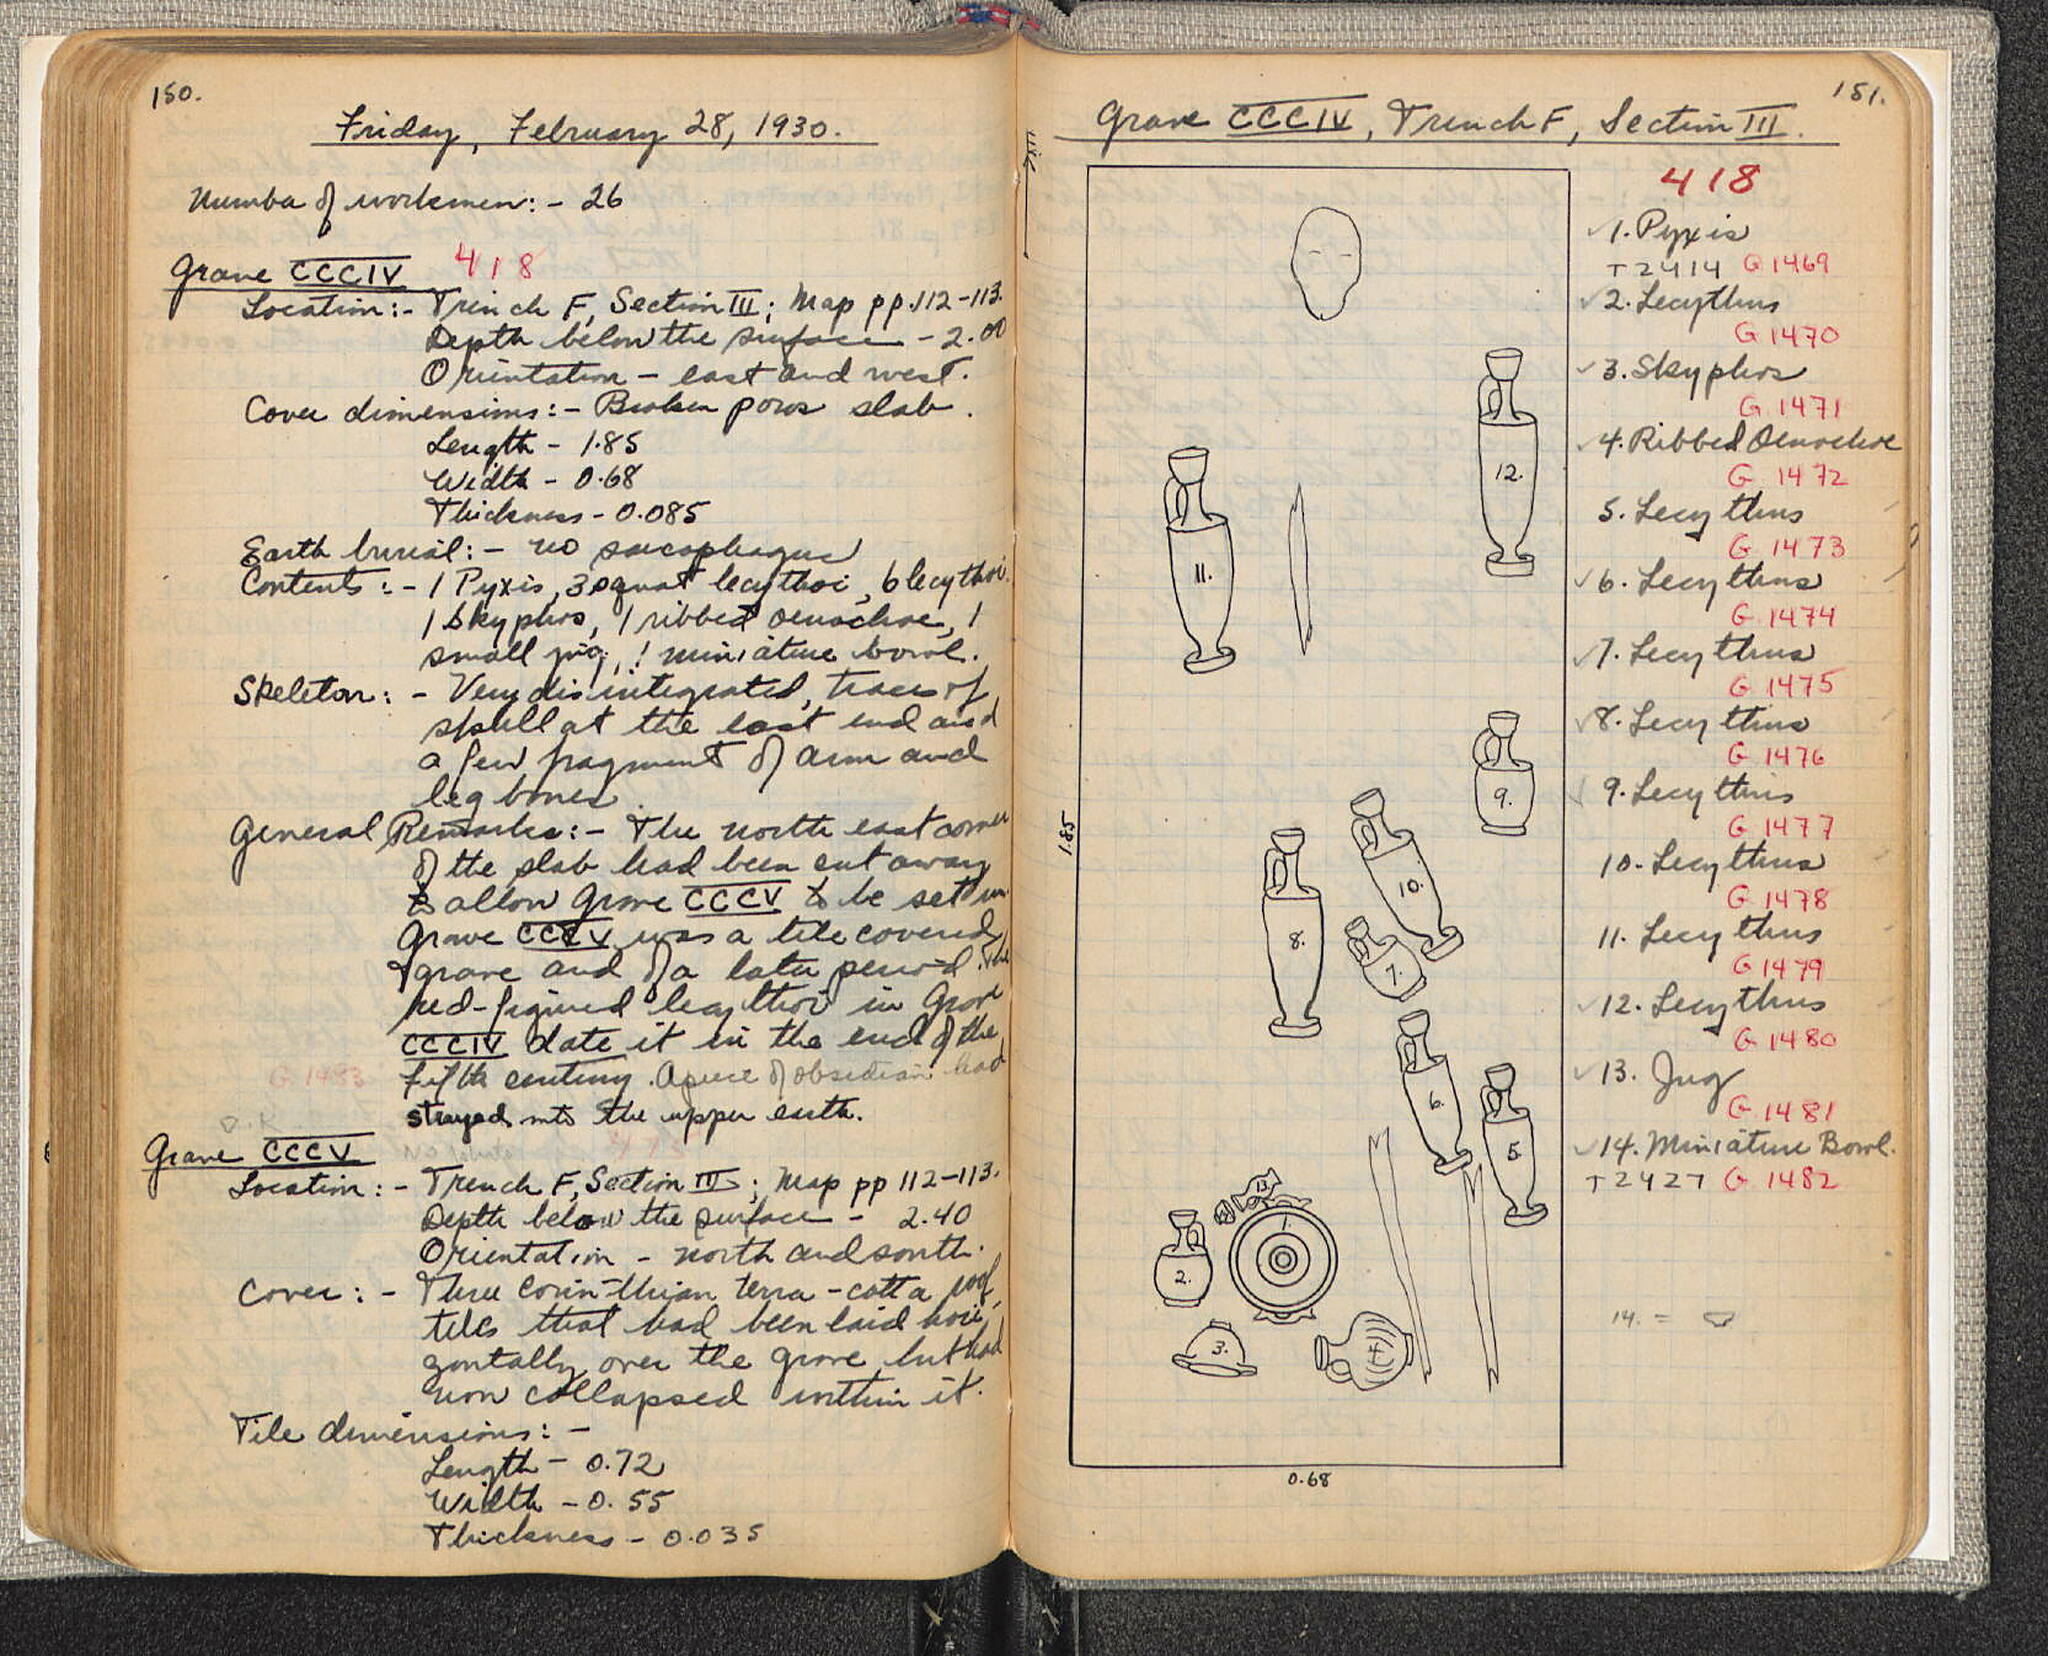 150.
Friday, February 28, 1930.
Number of workmen:- 26
Grave CCCIV 418
Location:- Trench F, Section III; Map pp. 112-113.
Depth below the surface - 2.00
Orientation - east and west.
Cover dimensions:- Broken poros slab.
Length - 1.85
Width - 0.68
Thickness - 0.085
Earth burial:- no sarcophagus
Contents:- 1 Pyxis, 3 squat lecythoi, 6 lecythoi.
1 Skyphos, 1 ribbed oenochoe, 1
small jug, 1 miniature bowl.
Skeleton:- Very disintegrated, traces of
skull at the east end and
a few fragment of arm and
leg bones.
General Remarks:- The north east corner
of the slab had been cut away
to allow Grave CCCV to be set in.
Grave CCCV was a tile covered
grave and of a later period. The
red-figured lecythoi in Grave
CCCIV date it in the end of the
G 1483 fifth century. A piece of obsidian had
strayed into the upper earth.
O.K.
Grave CCCV
Location:- Trench F, Section III; Map pp 112-113.
Depth below the surface - 2.40
Orientation - north and south.
Cover:- Three Corinthian terra-cotta roof
tiles that had been laid hori
zontally over the grove but had
now collapsed within it.
Tile dimensions:-
Length - 0.72
Width - 0.55
Thickness - 0.035
151.
Grave CCCIV, Trench F, Section III.
418
1. Pyxis
T2414 G 1469
2. Lecythus
G 1470
3. Skyphos
G 1471
4. Ribbed Oenochoe
G 1472
5. Lecythus
G 1473
6. Lecythus
G 1474
7. Lecythus
G 1475
8. Lecythus
G 1476
9. Lecythus
G 1477
10. Lecythus
G 1478
11. Lecythus
G 1479
12. Lecythus
G 1480
13. Jug
G 1481
14. Miniature Bowl.
T2427 G 1482
14. =
12.
11.
9.
10.
8.
7.
6.
5.
13
14
1.
2.
3.
4
1.85
0.68